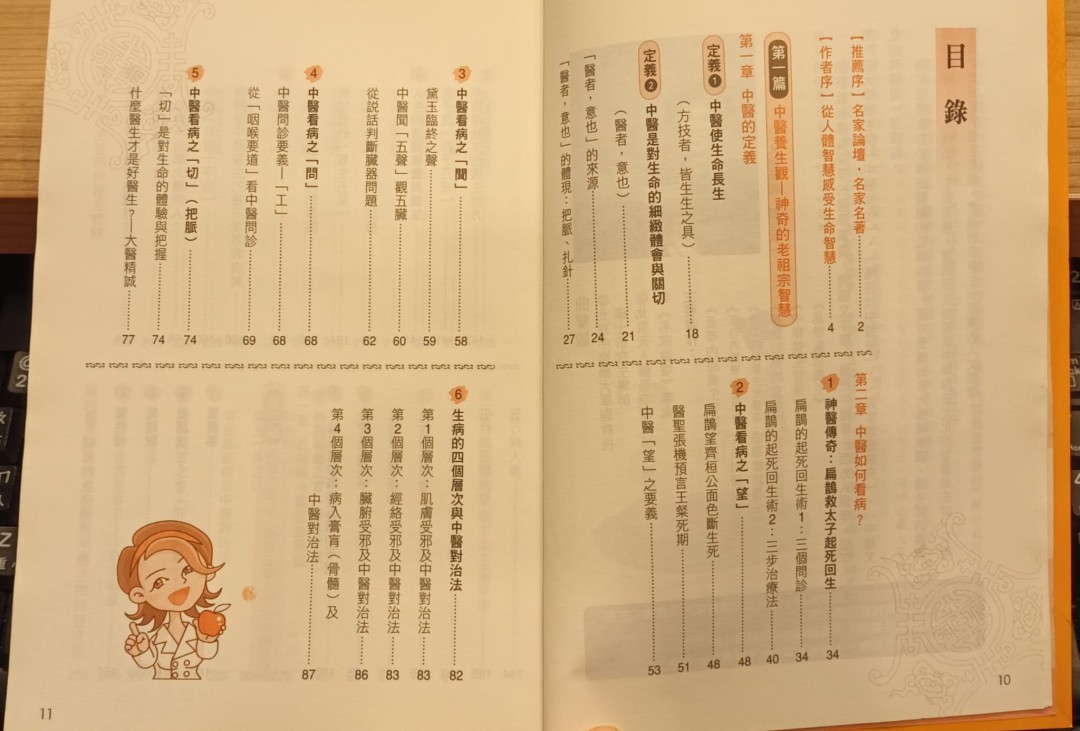 目錄
【推薦序】名家論壇．名家名著 2
【作者序】從人體智慧感受生命智慧 4
第一篇 中醫養生觀—神奇的老祖宗智慧
第一章 中醫的定義
定義1 中醫使生命長生
（方技者，皆生生之具） 18
定義2 中醫是對生命的細緻體會與關切
（醫者，意也） 21
「醫者，意也」的來源 24
「醫者，意也」的體現：把脈、扎針 27
第二章 中醫如何看病？
1 神醫傳奇：扁鵲救太子起死回生 34
扁鵲的起死回生術1：三個問診 34
扁鵲的起死回生術2：三步治療法 40
2 中醫看病之「望」 48
扁鵲望齊桓公面色斷生死 48
醫聖張機預言王粲死期 51
中醫「望」之要義 53
10
3 中醫看病之「聞」 58
黛玉臨終之聲 59
中醫聞「五聲」觀五臟 60
從說話判斷臟器問題 62
4 中醫看病之「問」 68
中醫問診要義—「工」 68
從「咽喉要道」看中醫問診 69
5 中醫看病之「切」（把脈） 74
「切」是對生命的體驗與把握 74
什麼醫生才是好醫生？—大醫精誠 77
6 生病的四個層次與中醫對治法 82
第1個層次：肌膚受邪及中醫對治法 83
第2個層次：經絡受邪及中醫對治法 83
第3個層次：臟腑受邪及中醫對治法 86
第4個層次：病入膏肓（骨髓）及
中醫對治法 87
11